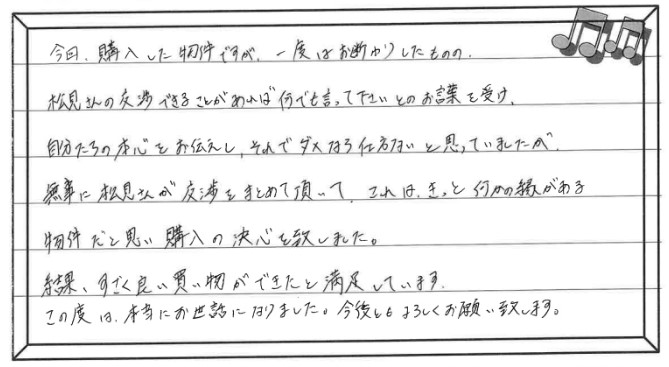 今回、購入した物件ですが、一度はお断りしたものの、
松見さんの交渉できることがあれば何でも言って下さいとのお言葉を受け、
自分たちの本心をお伝えし、それでダメなら仕方ないと思っていましたが、
無事に松見さんが交渉をまとめて頂いて、これは、きっと何かの縁がある
物件だと思い購入の決心を致しました。
結果、すごく良い買い物ができたと満足しています。
この度は、本当にお世話になりました。今後ともよろしくお願い致します。